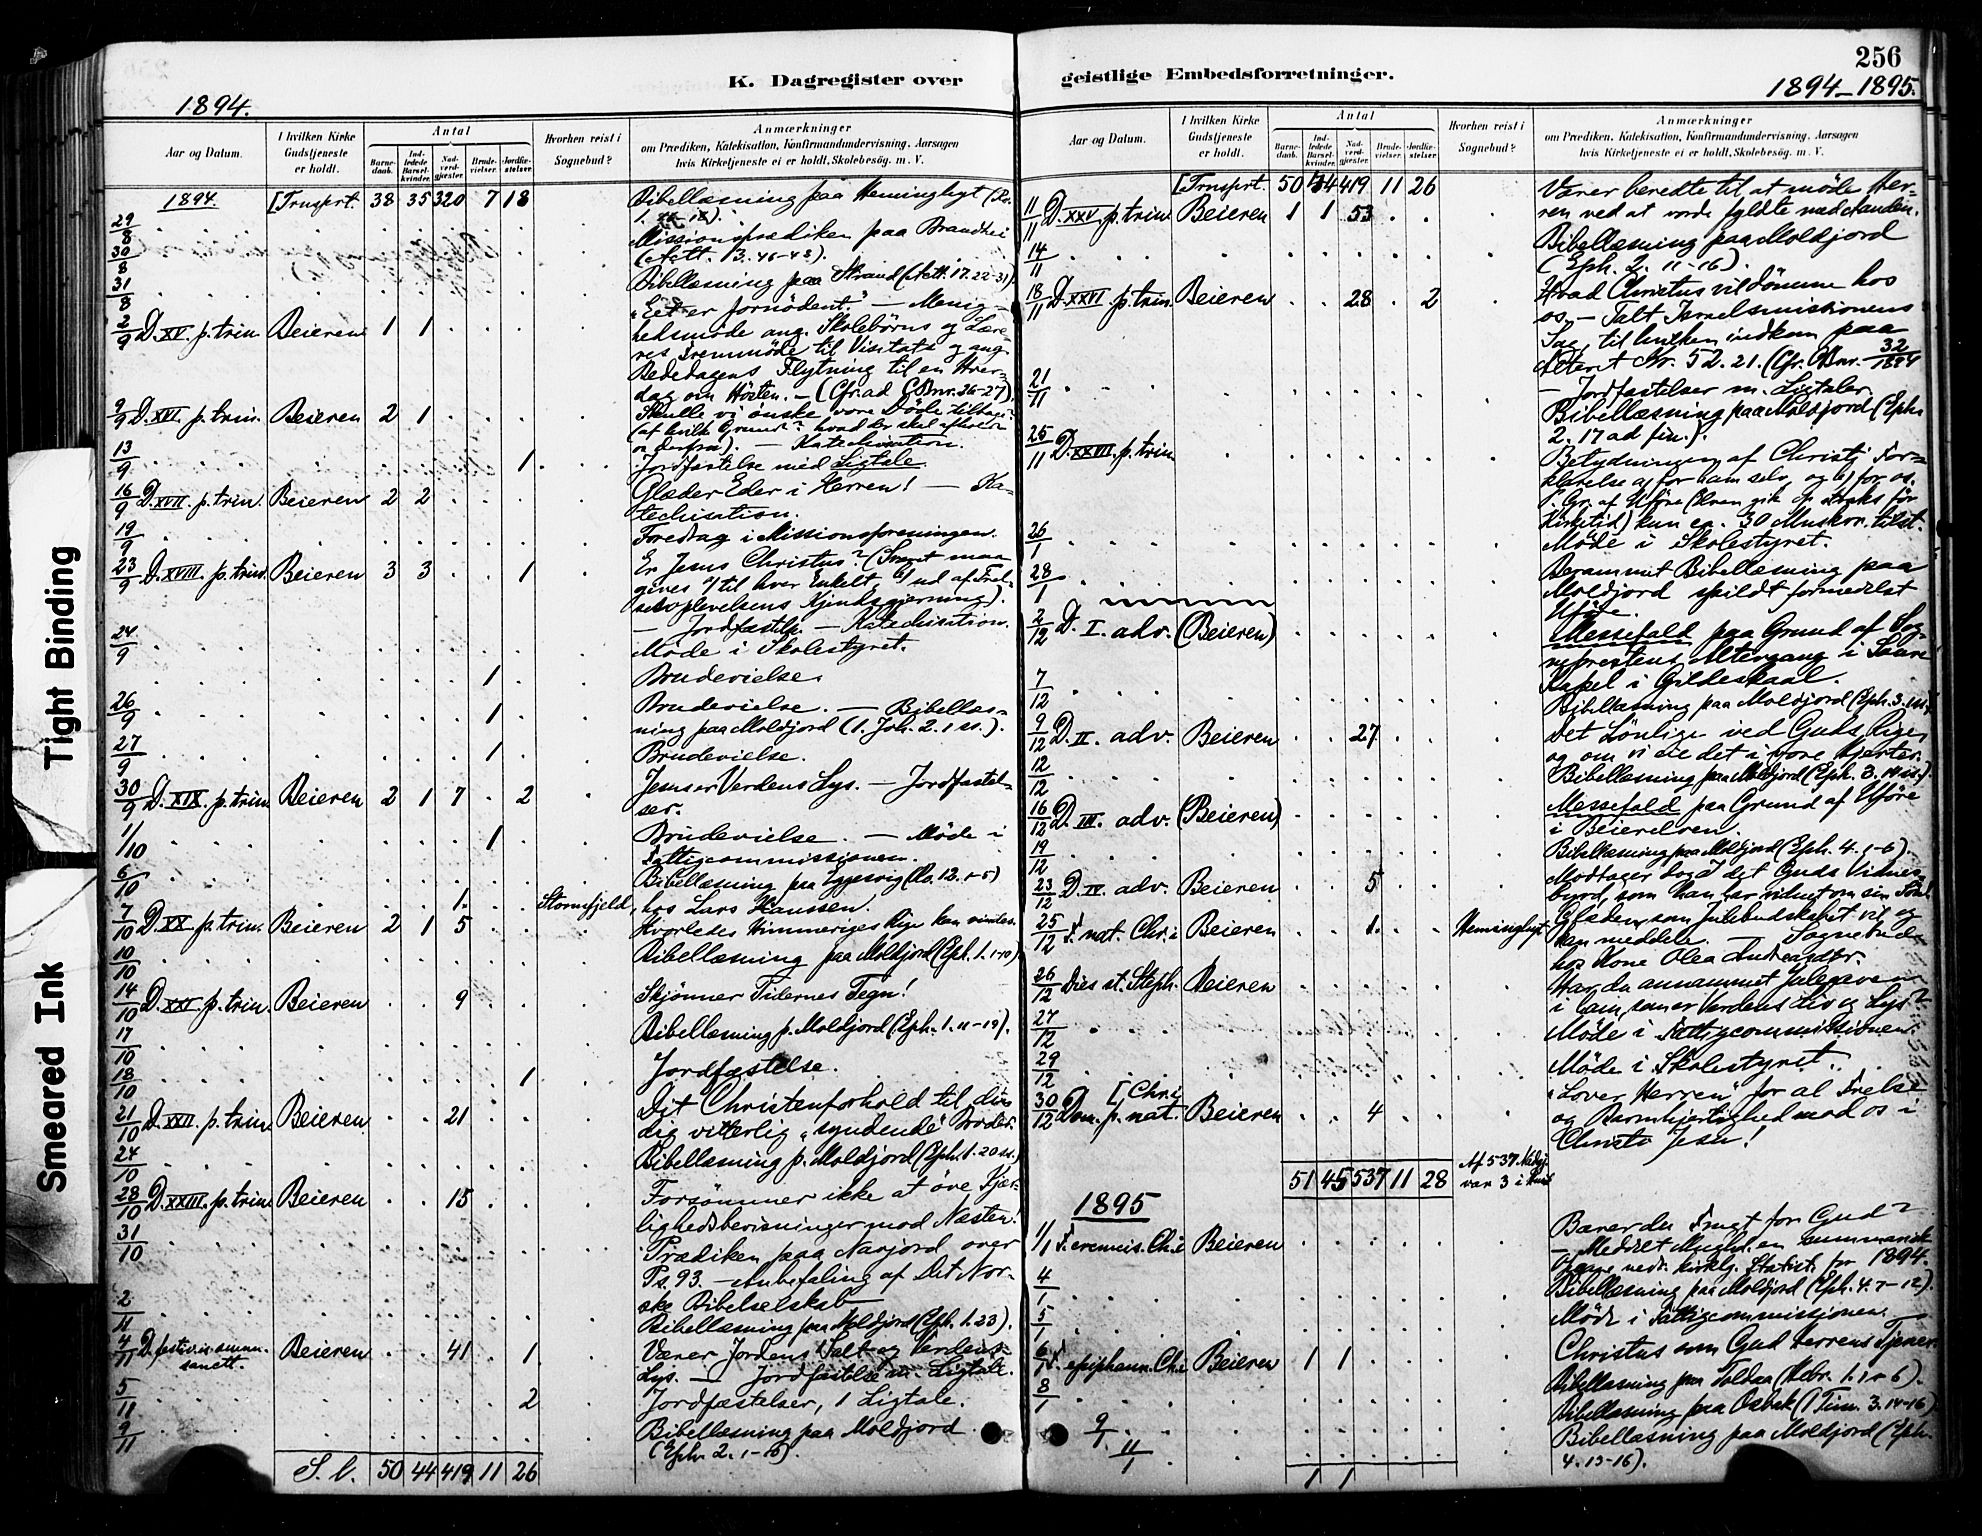 256
K. Dagregister over geistlige Embedsforretninger.
1894.
1894-1895.
Aar og Datum.
I hvilken Kirke Gudstjeneste er holdt.
Antal
Barnedaab.
Indledede Barselkvinder.
Nadverdgjæster.
Brudevielser.
Jordfæstelser.
Hvorhen reist i Sognebud?
Anmærkninger
om Prædiken, Katekisation, Konfirmandundervisning, Aarsagen
hvis Kirketjeneste ei er holdt, Skolebesøg. m. V.
1894. [Trnsprt. 38 35 320 7 18 Bibellæsning paa
29/8 Missionsprædiken paa
30/8
31/8 Bibellæsning paa Strand (Actt. 17. 22-31).
"Eet er fornødent." - Menig-
2/9 D. XV. p. trin. Beieren 1 1 hedsmøde ang. Skolebørns og Lære-
res Fremmøde til Visitats og ang.
Bededagens Flytning til en Hver-
dag om Hösten. -
9/9 D. XVI. p. trin. Beieren 2 1 Skulle vi ønske vore Døde tilbage?
- Katechisation.
13/9 1 Jordfæstelse med Ligtale.
16/9 D. XVII. p. trin. Beieren 2 2 Glæder Eder i Herren! - Ka-
techisation.
19/9 Foredrag i Missionsforeningen.
23/9 D. XVIII. p. trin. Beieren 3 3 1 Er Jesus Christus? (Svaret maa
gives a) til hver Enkelt b) ud af Frel-
- Jordfæstelse. - Katechisation.
24/9 Møde i Skolestyret.
1 Brudevielse.
26/9 1 Brudevielse. - Bibellæs-
ning paa Moldjord (1. Joh. 2. 1 ss.).
27/9 1 Brudevielse.
30/9 D. XIX. p. trin. Beieren 2 1 7 2 Jesus er Verdens Lys. - Jordfæstel-
ser.
1/10 1 Brudevielse. - Møde i
Fattigcommissionen.
6/10 Bibellæsning paa
1. Stormfjeld, hos Lars Hanssen.
7/10 D. XX. p. trin. Beieren 2 1 5 Hvorledes Himmeriges Rige kan vindes.
10/10 Bibellæsning paa Moldjord (Eph. 1. 1-10).
14/10 D. XXI. p. trin. Beieren 9 Skjønner Tidernes Tegn!
17/10 Bibellæsning p. Moldjord (Eph. 1. 11-19).
18/10 1 Jordfæstelse.
21/10 D. XXII. p. trin. Beieren 21 Dit Christenforhold til din
dig vitterlig "syndende" Broder.
24/10 Bibellæsning p. Moldjord (Eph. 1. 20 ss.)
28/10 D. XXIII. p. trin. Beieren 15 Forsömmer ikke at öve Kjær-
lighedsbevisninger mod Næsten!
31/10 Prædiken paa Navjord over
Ps. 93. - Anbefaling af Det Nor-
ske Bibelselskab
2/11 Bibellæsning paa Moldjord (Eph. 1. 23).
4/11 D. festivis omnium sanctt. Beieren 41 1 Værer Jordens Salt og Verdens
Lys. - Jordfæstelse m. Ligtale.
5/11 2 Jordfæstelser, 1 Ligtale.
9/11 Bibellæsning paa Moldjord
(Eph. 2. 1-10).
S. l. 50 44 419 11 26
Aar og Datum.
I hvilken Kirke Gudstjeneste er holdt.
Antal
Barnedaab.
Indledede Barselkvinder.
Nadverdgjæster.
Brudevielser.
Jordfæstelser.
Hvorhen reist i Sognebud?
Anmærkninger
om Prædiken, Katekisation, Konfirmandundervisning, Aarsagen
hvis Kirketjeneste ei er holdt, Skolebesög. m. V.
[Trnsprt. 50 44 419 11 26 Værer beredte til at møde Her-
11/11 D. XXV. p. trin. Beieren 1 1 53 ren ved at vorde fyldte med Aanden.
14/11 Bibellæsning paa Moldjord
(Eph. 2. 11-16).
18/11 D. XXVI. p. trin. Beieren 28 2 Hvad Christus vil dömme hos
os. - Talt Israelsmissionens
Sag, til hvilken indkom paa
Alteret Kr. 52. 21. (Cfr. Bnr. 32/1894
- Jordfæstelser m. Ligtaler.
21/11 Bibellæsning paa Moldjord (Eph.
2. 17 ad fin.).
25/11 D. XXVII. p. trin. Betydningen af Christi For-
klarelse a) for ham selv, og b) for os.
P. Gr. af Uföre (Elven gik op straks för
Kirketid) kun ca. 30 Mnskr. tilst.
26/1 Møde i Skolestyret.
28/1 Berammet Bibellæsning paa
Moldjord spildt formedelst
Uföre.
2/12 D. I. adv. (Beieren) Messefald paa Grund af Sog-
neprestens Altergang i
Kapel i Gildeskaal.
7/12 Bibellæsning paa Moldjord (Eph. 3. 1 ss.)
9/12 D. II. adv. Beieren 27 Det Lönlige ved Guds Rige,
og om vi eie det i vore Hjerter.
12/12 Bibellæsning paa Moldjord (Eph. 3. 14 ss.).
16/12 D. III. adv. (Beieren) Messefald paa Grund af Uföre
i Beierelven.
19/12 Bibellæsning paa Moldjord (Eph. 4. 1-6).
23/12 D. IV. adv. Beieren 5 Modtager dog I det Guds Vidnes-
byrd, som Han har vidnet om sin Søn!
25/12 F. nat. Chr.i Beieren 1. Glæden, som Julebudskabet vil og
kan meddele. - Sognebud
hos Kone Olea Andreasdtr.
26/12 Dies st. Steph. Beieren Har du annammet Julegaven
i ham, som er Verdens Liv og Lys?
27/12 Møde i Fattigcommissionen.
29/12 Møde i Skolestyret.
30/12 Dom. p. nat. [Chr.i Beieren 4 "Lover Herren" for al Frelse
og Barmhjertighed mod os i
Christo Jesu!
51 45 537 11 28 Af 537 Nadvgj.
var 3 i
1895
1/1 Beieren Bærer du Frugt for Gud?
1894.
4/1 Bibellæsning paa Moldjord (Eph. 4. 7-12).
5/1 Møde i Fattigcommissionen.
6/1 F. epiphann. Ch.i Beieren 1 1 Christus som Gud Herrens Tjener.
8/1 Bibellæsning paa Toldaa (Hebr. 1. 1-6).
9/1 Bibellæsning paa Osbak (1 Tim. 3. 14-16)
11/1 Bibellæsning paa Moldjord (Eph.
4. 13-16).
1 1
Tight Binding
Smeared Ink